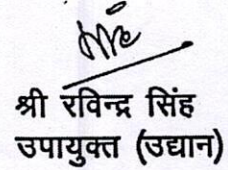 श्री रविन्द्र सिंह
उपायुक्त (उद्यान)